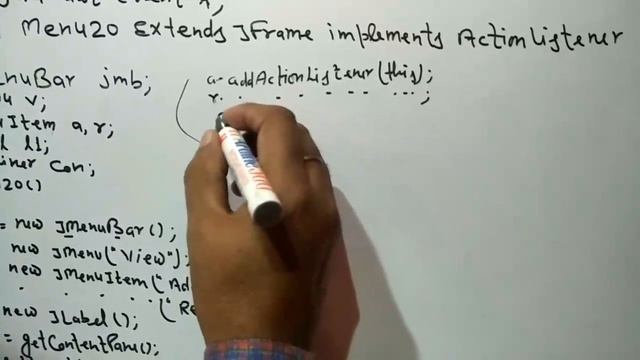 Menu20 Extends JFrame implements ActionListener
nuBar jmb;
a.addActionListener(this);
v;
r. - - - - - - ... ;
Item a, r;
l1;
iner Con;
20()
= new JMenuBar();
new JMenu("View");
new JMenuItem("Ad
. . . . . ("Re
new JLabel();
= getContentPane();